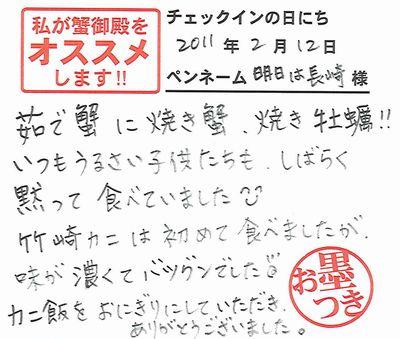 私が蟹御殿を
オススメ
します!!
チェックインの日にち
2011 年 2 月 12 日
ペンネーム 明日は長崎 様
茹で蟹に焼き蟹、焼き牡蠣!!
いつもうるさい子供たちも、しばらく
黙って食べていました
竹崎カニは初めて食べましたが、
味が濃くてバツグンでした
カニ飯をおにぎりにしていただき、
ありがとうございました。
お墨つき